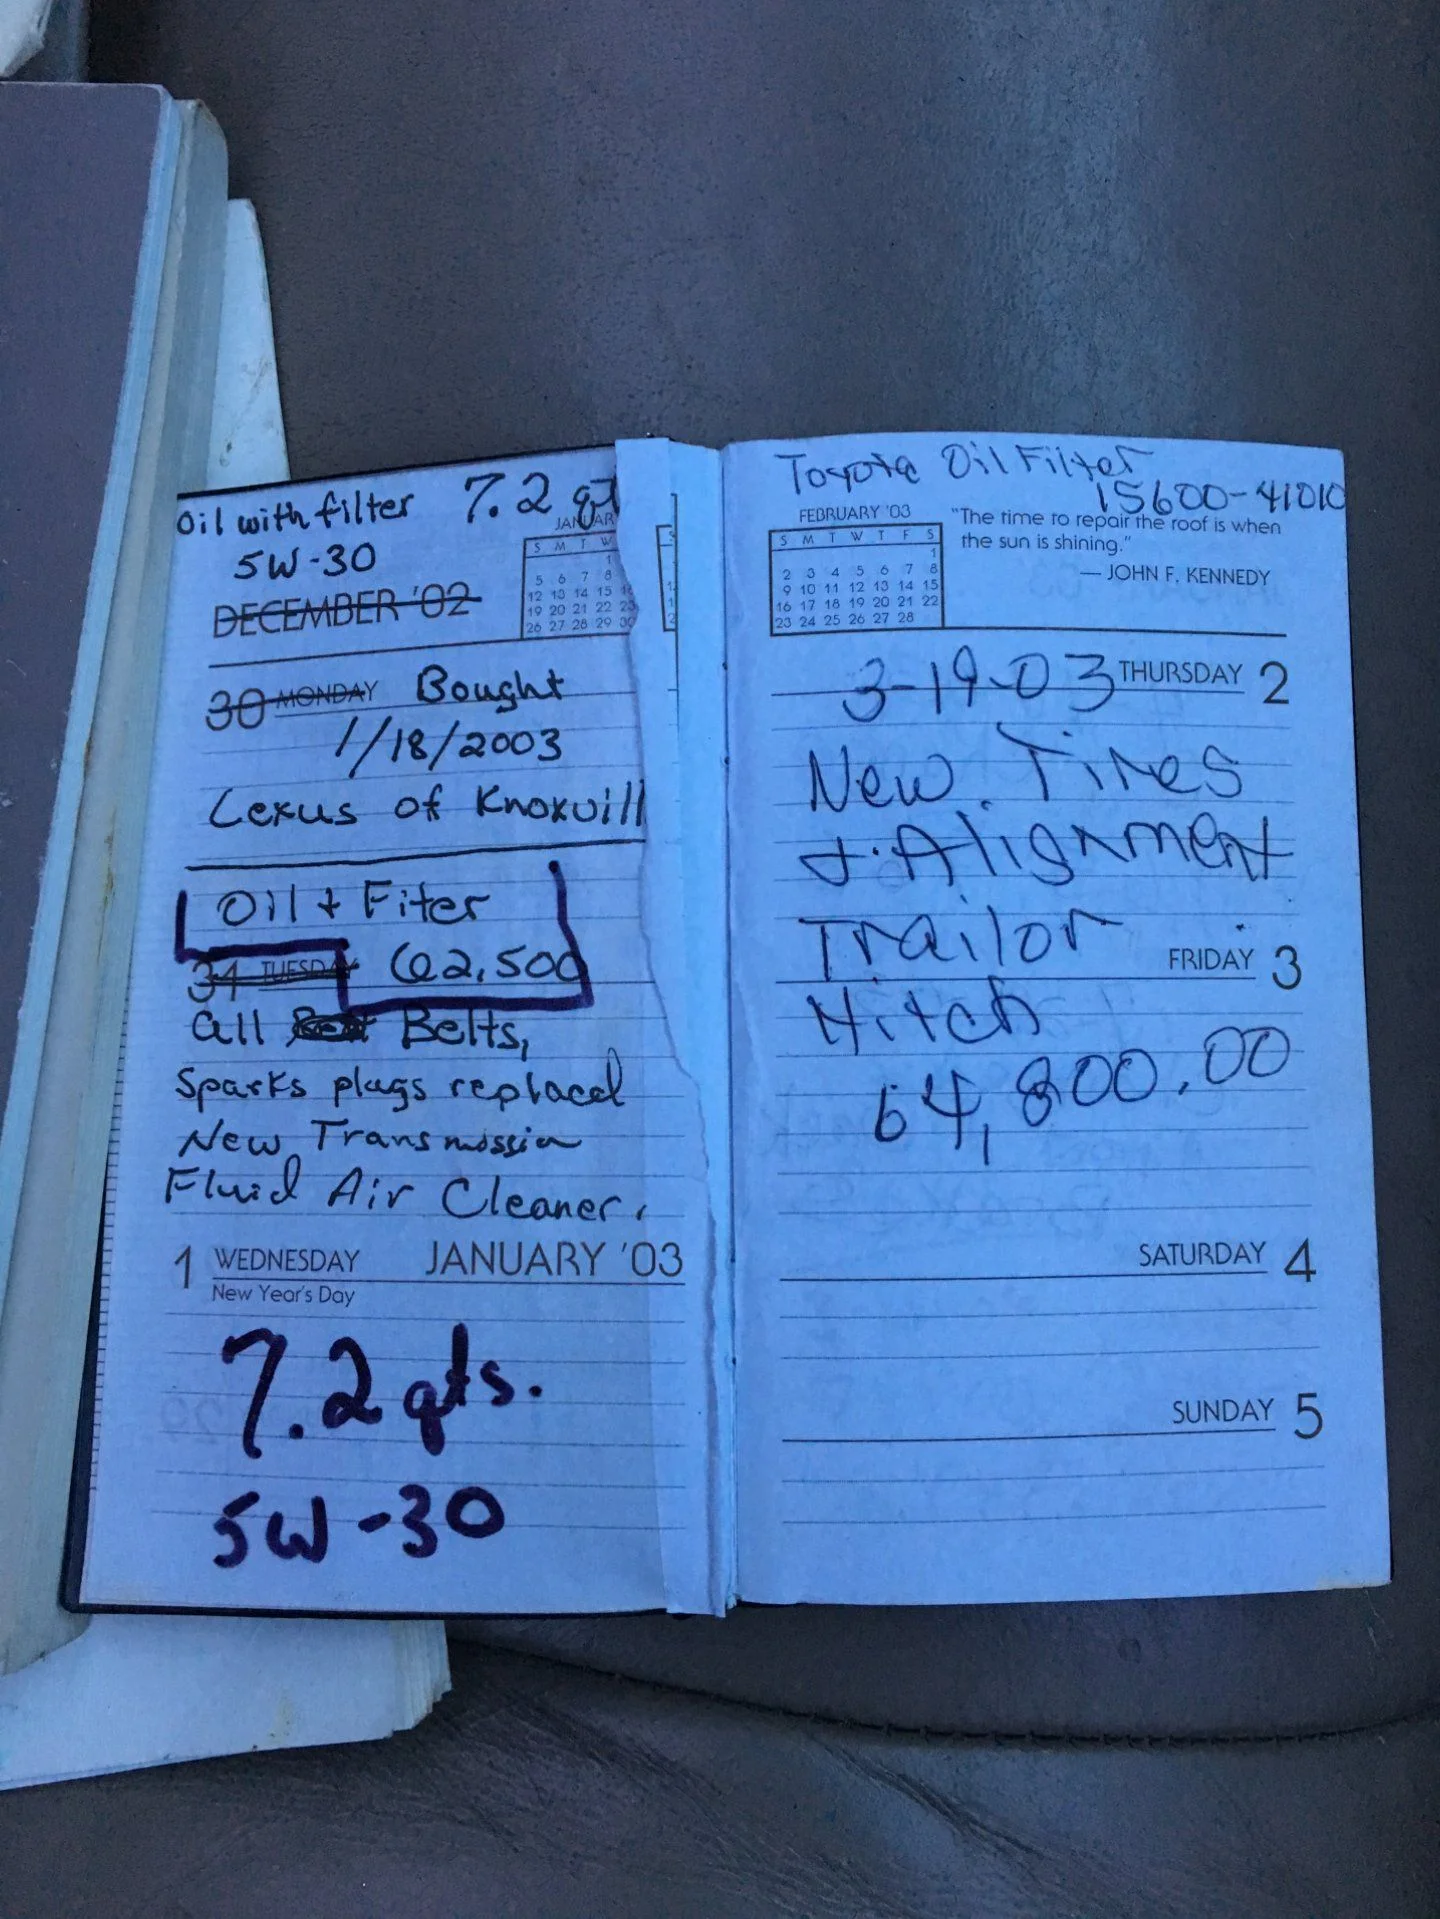 Oil with filter 7.2 qt
5W-30
DECEMBER '02
JANUAR
S M T W
1
5 6 7 8
12 13 14 15 16
19 20 21 22 23
26 27 28 29 30
30 MONDAY Bought
1/18/2003
Lexus of Knoxvill
Oil + Fiter
31 TUESDAY 62,500
all Belts,
Sparks plugs replaced
New Transmission
Fluid Air Cleaner.
1 WEDNESDAY JANUARY '03
New Year's Day
7.2 qts.
5W-30
Toyota Oil Filter
15600-41010
FEBRUARY '03
S M T W T F S
1
2 3 4 5 6 7 8
9 10 11 12 13 14 15
16 17 18 19 20 21 22
23 24 25 26 27 28
"The time to repair the roof is when
the sun is shining."
— JOHN F. KENNEDY
3-19-03 THURSDAY 2
New Tires
+ Alignment
Trailor
FRIDAY 3
Hitch
64,800.00
SATURDAY 4
SUNDAY 5